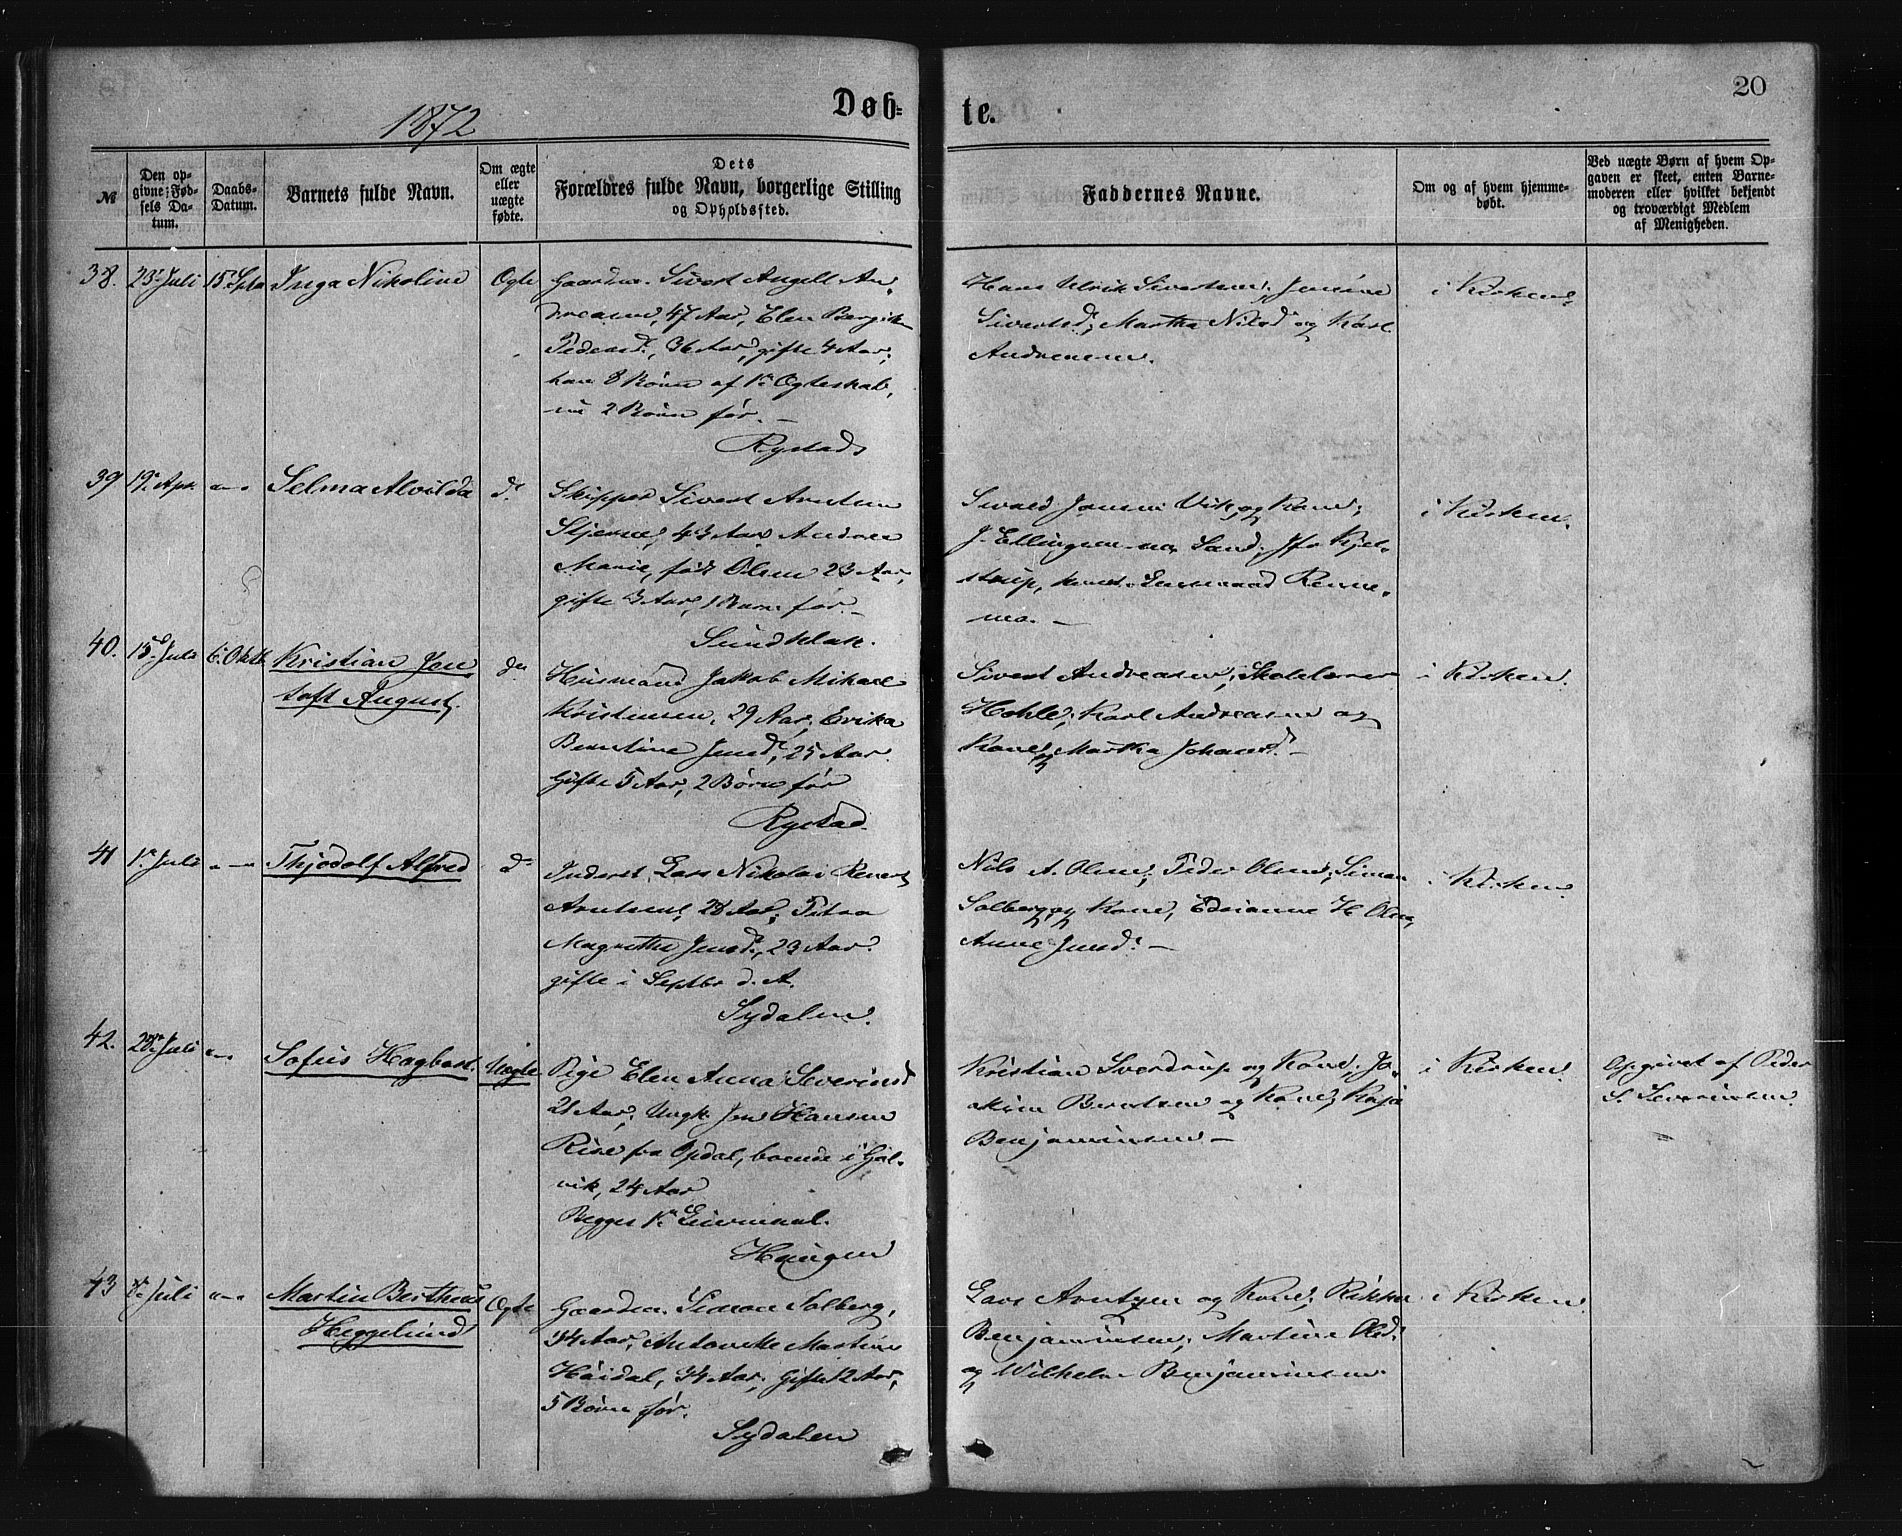 20
1872
Døb=
te.
№
Den op-
givne Fød-
sels Da-
tum.
Daabs-
Datum.
Barnets fulde Navn.
Om ægte
eller
uægte
fødte.
Dets
Forældres fulde Navn, borgerlige Stilling
og Opholdssted.
Faddernes Navne.
Om og af hvem hjemme-
døbt.
Ved uægte Børn af hvem Op-
gaven er skeet, enten Barne-
moderen eller hvilket bekjendt
og troværdigt Medlem
af Menigheden.
38. 23 Juli 15 Septb Inga Nikoline Ægte Gaardm. Sivert Angell An-
dreasen, 47 Aar, Elen Bergitte
Pedersd., 36 Aar, gifte 4 Aar,
han 8 Børn af 1e Ægteskab,
nu 2 Børn før. —
Rystad
Hans Ulrik Sivertsen; Jensine
Sivertsd; Martha Nilsd og Karl
Andreasen.
i Kirken
39 19 Apr. Selma Alvilda do Skipper Sivert Arntsen
Stjernø, 43 Aar Andrea
Marie, født Olsen 23 Aar,
gifte 3 Aar, 1 Barn før. —
Sundklak.
Sivald Jensen Vik, og Kone;
J. Ellingsen Sand; Jfr Kjel-
strup,
mo. —
i Kirken.
40. 15 Juli 6. Oktb. Kristian Jen
toft August do Husmand Jakob Mikael
Kristensen, 29 Aar, Erika
Berntine Jensd, 25 Aar.
Gifte 5 Aar, 2 Børn før
Rystad.
Sivert Andreasen; Skolelærer
Hohle; Karl Andreasen og
Kone; Martha Johansd. —
i Kirken.
41 1e Juli Thjodolf Alfred do Inderst Lars Nikolai Renert
Arntsen, 28 Aar; Petra
Magrethe Jensd., 23 Aar.
gifte i Septbr d. A.
Sydalen.
Nils A. Olsen; Peder Olsen; Simon
Solberg og Kone, Edrianne H. Olsen,
Anne Jensd. —
i Kirken
42. 28 Juli Sofus Hagbart. Uægte Pige Elen Anna Severinsd
21 Aar; Ungk. Jon Hansen
Rise fra Opdal, boende i Gul-
vik, 24 Aar
Begges 1e Leiermaal.
Haugen
Kristian Sverdrup og Kone; Jo-
akim Berntsen og Kone, Kaja
Benjaminsen —
i Kirken
Opgivet af Peder
S. Severinsen
43 Juli Martin Berthéus
Heggelund Ægte Gaardm. Simon Solberg,
34 Aar, Antonette Martine
Høidal, 34 Aar, Gifte 12 Aar,
5 Børn før.
Sydalen
Lars Arntzen og Kone; Rikka
Benjaminsen; Martine Olsd.
og Wilhelm Benjaminsen
i Kirken